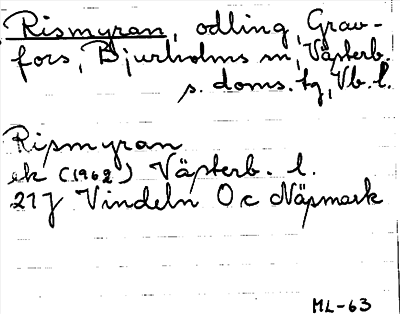 Rismyran, odling, Grav-
fors, Bjurholms sn, Västerb.
s. doms. tg, Vb. l.
Rismyran
ek (1962) Västerb. l.
21J Vindeln 0c Näsmark
ML-63